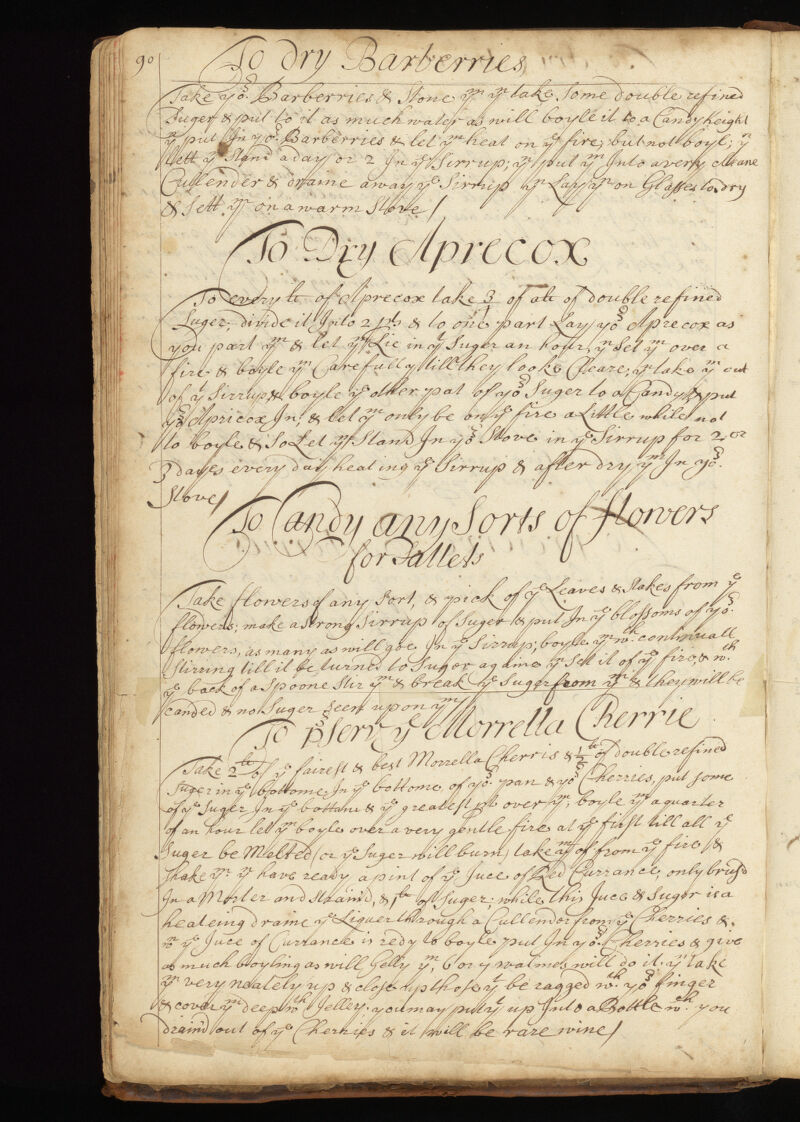 90
To Dry Barberries
Take yor. Barberries & Stone ym yn take Some double refined
Suger & put to it as much water as will boyle it to a Candy height
yn put In yor Barberries & let ym heat on ye fire; but not boyl; yn
lett ym Stand a day or 2 In ye Sirrup; yn put ym Into a very cleane
Cullender & draine away ye Sirrup yn Lay ym on Glasses to dry
& Sett ym on a warm Stove/
To Dry Aprecox
To every lb of Aprecox take 3/4 of a lb of double refined
Suger; divide it Into 2 pts & to one part Lay yor Aprecox as
you part ym & let ym Lie in yt Suger an hour yn Set ym over a
fire & boyle ym Carefully till they looke Cleare; yn take ym out
of yt Sirrup & boyle ye other pat of yor Suger to a Candy & put
yor Apricox In; & let ym only be on ye fire a Little while not
to boyle & So Let ym Stand In yor Stove in ye Sirrup for 2 or
3 dayes every day heating ye Sirrup & after dry ym In yor.
Stove/
To Candy any Sorts of flowers
for Sallets
Take flowers of any Sort, & pick of ye Leaves & Stakes from ye
flowers; make a strong Sirrup of Suger & put In ye blossoms of yor.
flowers, as many as will goe In ye Sirrup; boyle ym wth continuall
Stirring till it be turned to Suger againe yn Set it of ye fire, & wth
ye back of a Spoone Stir ym & break ye Suger from ym & they will be
canded & no Suger Seen upon ym
To pserv ye Morrella Cherrie
Take 2lb of ye fairest & best Morrella Cherris & 1/2 lb of double refined
Suger in ye bottome In ye bottome of yor pan & yor Cherries, put some
of ye Suger In ye bottom & ye greatest pt over ym; boyle ym a quarter
of an hour let ym boyle over a very gentle fire at ye first till all ye
Suger be Melted (or ye Suger will burn) take ym of from ye fire, &
shake ym yn have ready a pint of ye Juce of Red Currance, only brusd
In a Morter and Straind, & 1lb of Suger; while this Juce & Suger is a
heateing draine ye Liquer through a Cullender from ye Cherries &.
wn ye Juce of Currance is redy to boyle put In yor Cherries & give
as much boyling as will Gelly ym, 6 or 7 walmes will do it. yn take
ym very neately up & close up those yt be ragged wth yor finger
& cover ym deep wth Jelley. you may put yt up Into a Bottle wch. you
draind out of ye Cherries & it will be rare wine/